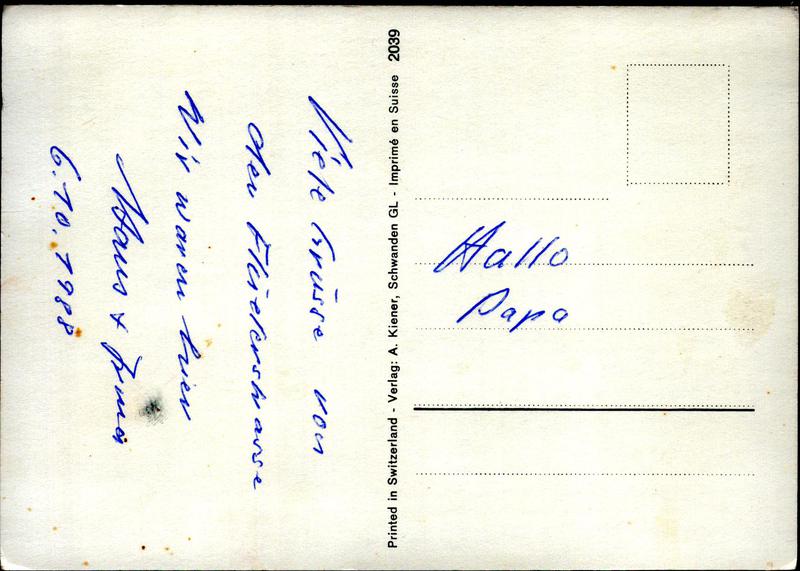 Viele Grüsse von
der
Wir waren hier
Hans +
6.10.1988
Printed in Switzerland - Verlag: A. Kiener, Schwanden GL - Imprimé en Suisse 2039
Hallo
Papa